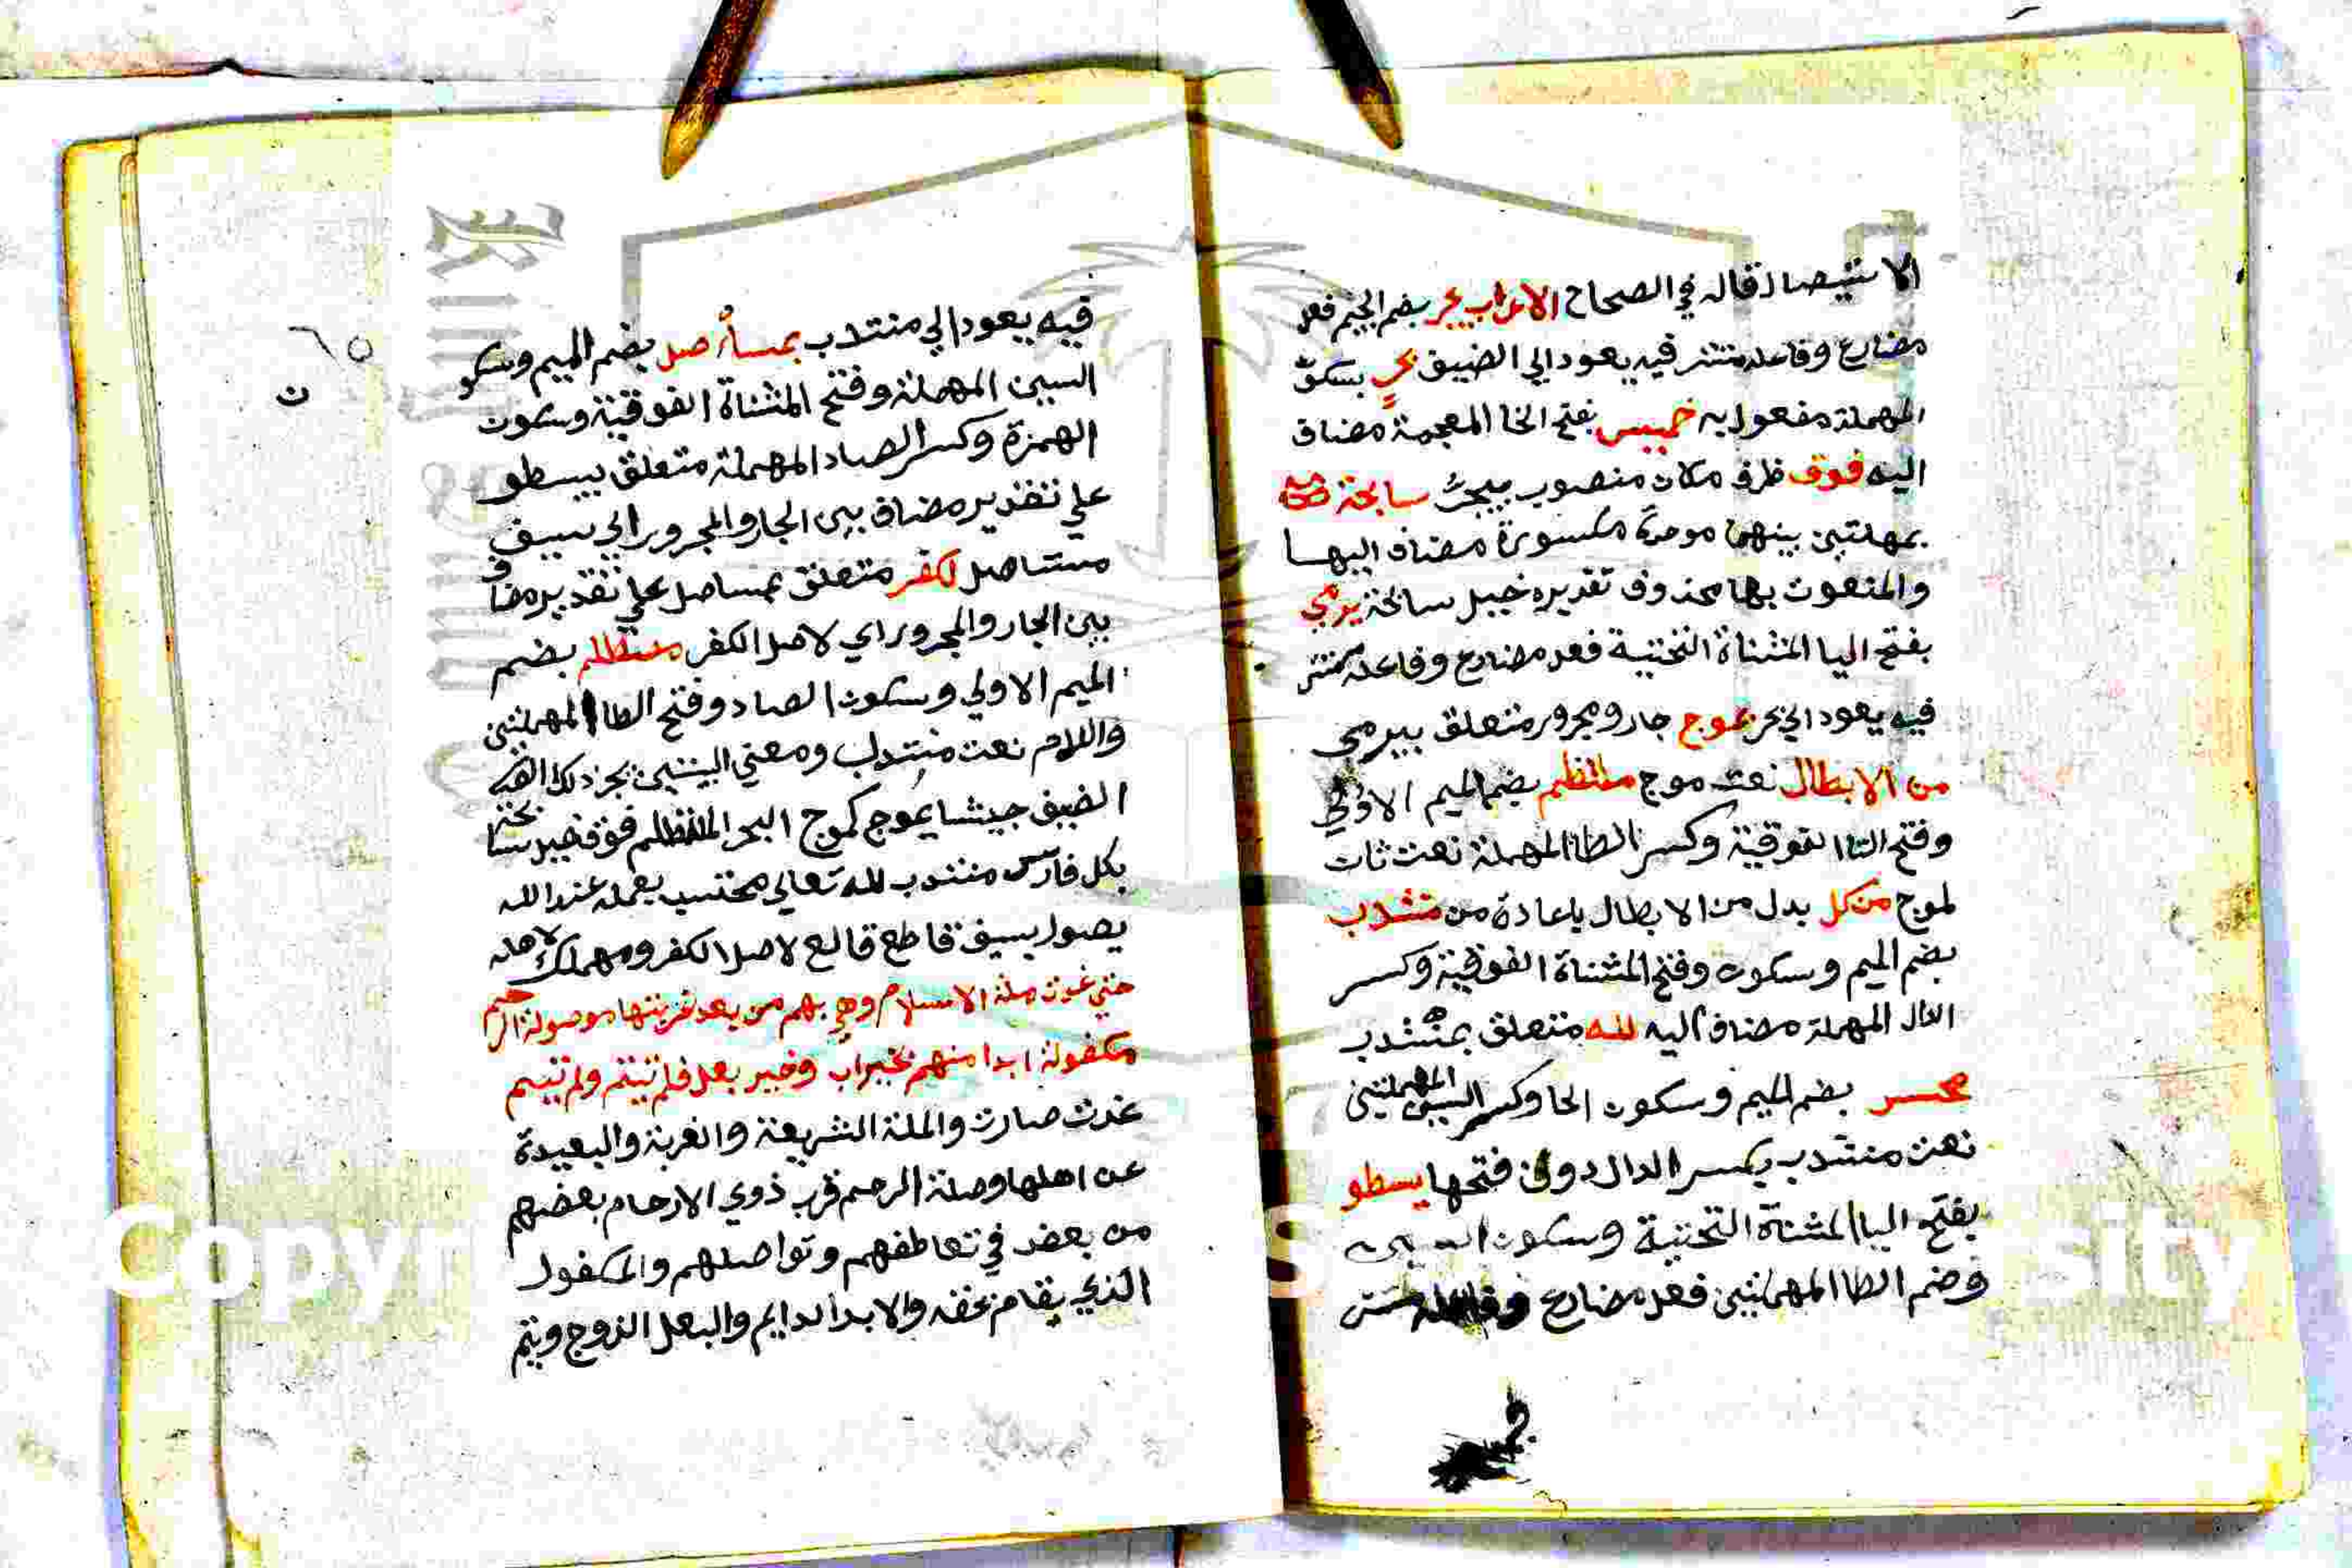 الاستيصال قاله في الصحاح الاعراب يجر بضم الجيم فعل
مضارع وفاعله مستتر فيه يعود الي الضيف بحر بسكون
المهملة مفعول به خميس بفتح الخا المعجمة مضاف
اليه فوق ظرف مكان منصوب بيجر سابحة
بمهملتين بينهما موحدة مكسورة مضاف اليها
والمنعوت بها محذوف تقديره خيل سابحة يرمي
بفتح اليا المثناة التحتية فعل مضارع وفاعله مستتر
فيه يعود الي بحر بموج جار ومجرور متعلق بيرمي
من الابطال نعت موج ملتطم بضم الميم الاولي
وفتح التا الفوقية وكسر الطا المهملة نعت ثان
لموج من كل بدل من الابطال باعادة من منتدب
بضم الميم وسكون وفتح المثناة الفوقية وكسر
الدال المهملة مضاف اليه لله متعلق بمنتدب
بضم الميم وسكون الحا وكسر السين المهملتين
نعت منتدب بكسر الدال دون فتحها يسطو
بفتح اليا المثناة التحتية وسكون السين
وضم الطا المهملتين فعل مضارع وفاعله مستتر
فيه يعود الي منتدب بمستأصل بضم الميم وسكو
السين المهملة وفتح المثناة الفوقية وسكون
الهمزة وكسر الصاد المهملة متعلق بيسطو
علي تقدير مضاف بين الجار والمجرور اي بسيف
مستاصل لكفر متعلق بمستاصل علي تقدير مضاف
بين الجار والمجرور اي لاصل الكفر مصطلم بضم
الميم الاولي وسكون الصاد وفتح الطا المهملتين
واللام نعت منتدب ومعني البيتين يجر ذلك
الضيف جيشا يموج كموج البحر الملتطم فوق خيل سابحة
بكل فارس منتدب لله تعالي محتسب بعمله عند الله
يصول بسيف قاطع قالع لاصل الكفر ومهلك لاهله
حتي غدت ملة الاسلام وهي بهم من بعد غربتها موصولة الرحم
مكفولة ابدا منهم بخير اب وخير بعل فلم تيتم ولم تئم
غدت صارت والملة الشريعة والغربة والبعيدة
عن اهلها وصلة الرحم قرب ذوي الارحام بعضهم
من بعض في تعاطفهم وتواصلهم والمكفول
الذي يقام بحقه والابد الدايم والبعل الزوج ويتم